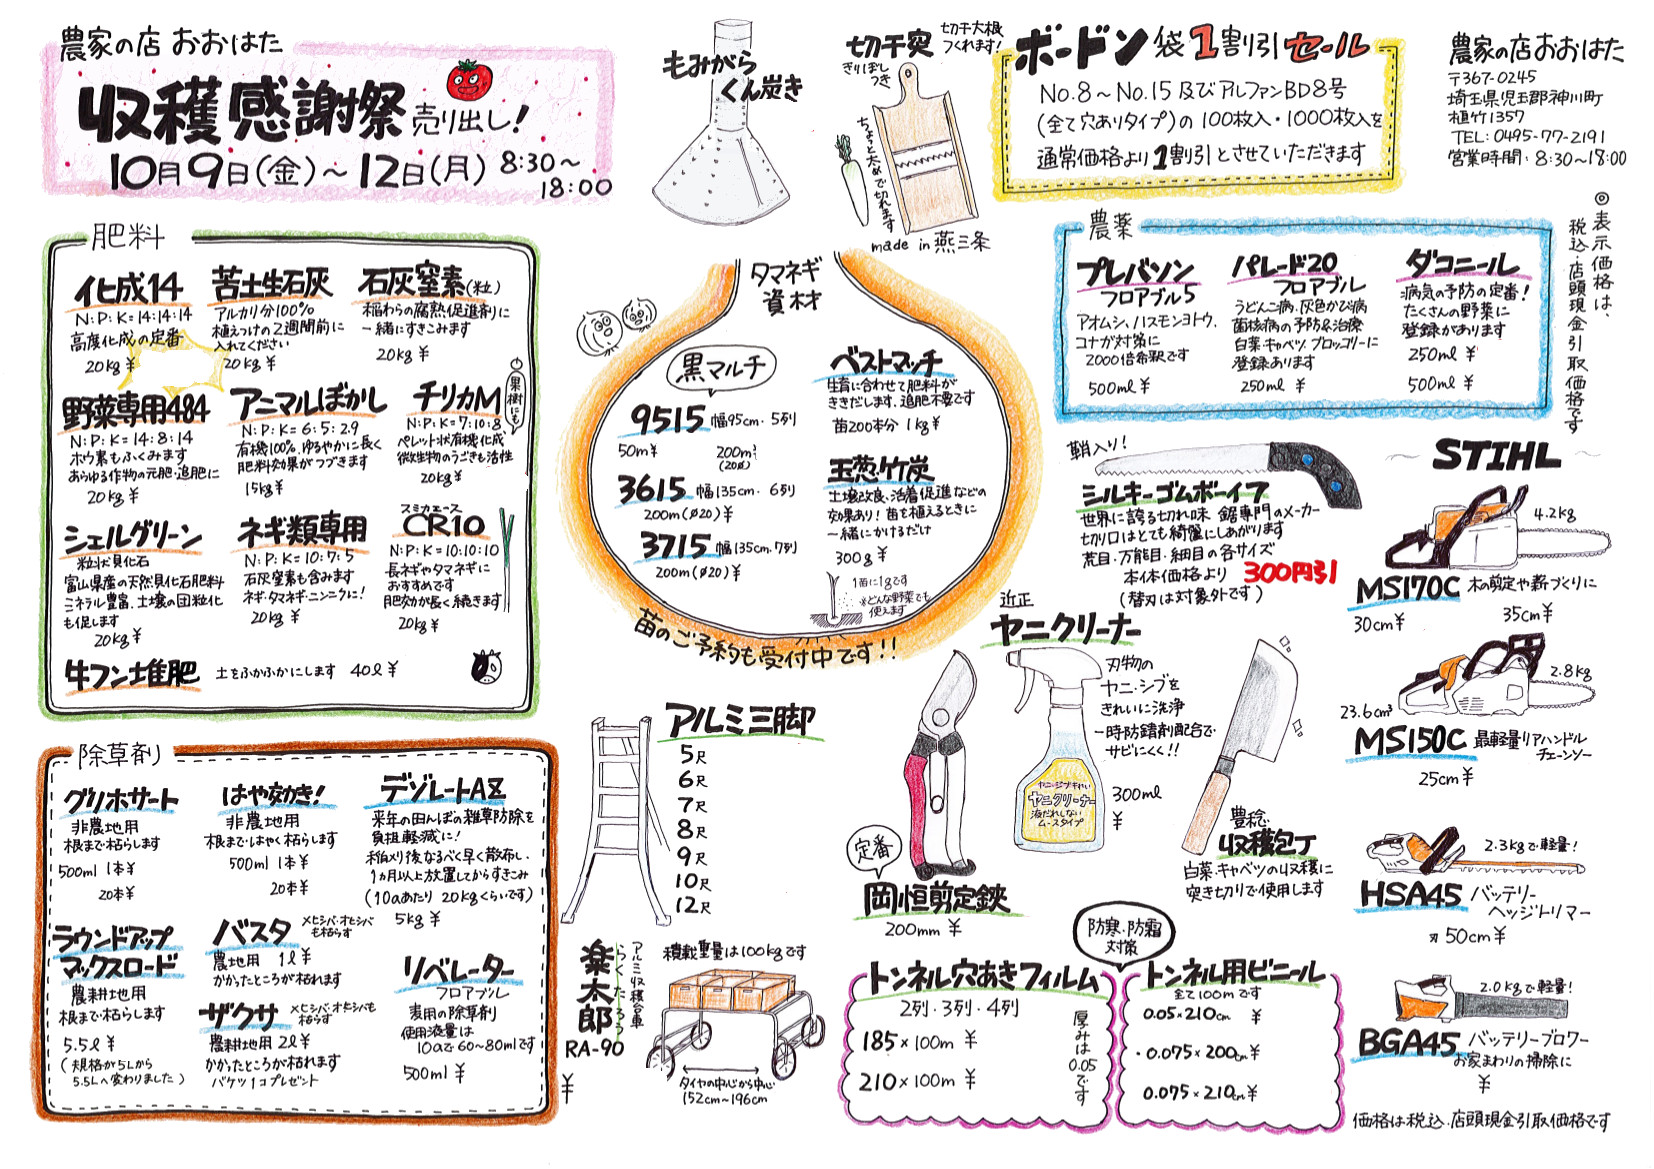 農家の店 おおはた
収穫感謝祭 売り出し!
10月9日(金)~12日(月) 8:30~
18:00
もみがら
くん炭き
切干突
きりぼし
つき
切干大根
つくれます!
ちょっと太めで切れます
made in 燕三条
ボードン袋1割引セール
No.8~No.15及びアルファンBD8号
(全て穴ありタイプ)の100枚入・1000枚入を
通常価格より1割引とさせていただきます
農家の店おおはた
〒367-0245
埼玉県児玉郡神川町
植竹1357
TEL:0495-77-2191
営業時間:8:30~18:00
◎表示価格は、
税込・店頭現金引取価格です
肥料
化成14
N:P:K=14:14:14
高度化成の定番
20kg ¥
苦土生石灰
アルカリ分100%
植えつけの2週間前に
入れてください
20kg ¥
石灰窒素(粒)
稲わらの腐熟促進剤に
一緒にすきこみます
20kg ¥
野菜専用484
N:P:K=14:8:14
ホウ素もふくみます
あらゆる作物の元肥・追肥に
20kg ¥
アニマルぼかし
N:P:K=6:5:2.9
有機100%、ゆるやかに長く
肥料効果がつづきます
15kg ¥
チリカM
果樹にも
N:P:K=7:10:8
ペレット状有機化成
微生物のうごきも活性
20kg ¥
シェルグリーン
粒状貝化石
富山県産の天然貝化石肥料
ミネラル豊富、土壌の団粒化
も促します
20kg ¥
ネギ類専用
N:P:K=10:7:5
石灰窒素も含みます
ネギ・タマネギ・ニンニクに!
20kg ¥
スミカエース
CR10
N:P:K=10:10:10
長ネギやタマネギに
おすすめです
肥効が長く続きます
20kg ¥
牛フン堆肥 土をふかふかにします 40ℓ ¥
タマネギ
資材
黒マルチ
9515 幅95cm・5列
50m¥ 200m¥
(20ø)
3615 幅135cm・6列
200m(ø20)¥
3715 幅135cm・7列
200m(ø20)¥
ベストマッチ
生育に合わせて肥料が
ききだします、追肥不要です
苗200本分 1kg¥
玉葱竹炭
土壌改良・活着促進などの
効果あり!苗を植えるときに
一緒にかけるだけ
300g ¥
1苗に1gです
※どんな野菜でも
使えます
苗のご予約も受付中です!!
農薬
プレバソン
フロアブル5
アオムシ、ハスモンヨトウ、
コナガ対策に
2000倍希釈です
500ml ¥
パレード20
フロアブル
うどんこ病、灰色かび病
菌核病の予防&治療
白菜、キャベツ、ブロッコリーに
登録あります
250ml ¥
ダコニール
病気の予防の定番!
たくさんの野菜に
登録があります
250ml ¥
500ml ¥
鞘入り!
シルキーゴムボーイ
世界に誇る切れ味 鋸専門のメーカー
切り口はとても綺麗にしあがります
荒目・万能目・細目の各サイズ
本体価格より 300円引
(替刃は対象外です)
STIHL
4.2kg
MS170C 木の剪定や薪づくりに
30cm¥ 35cm¥
2.8kg
23.6cm³
MS150C 最軽量リアハンドル
チェーンソー
25cm ¥
2.3kgで軽量!
HSA45 バッテリー
ヘッジトリマー
刃50cm ¥
2.0kgで軽量!
BGA45 バッテリーブロワー
お家まわりの掃除に
¥
価格は税込・店頭現金引取価格です
除草剤
グリホサート
非農地用
根まで枯らします
500ml 1本¥
20本¥
はや効き!
非農地用
根まではやく枯らします
500ml 1本¥
20本¥
デゾレートAZ
来年の田んぼの雑草防除を
負担軽減に!
稲刈り後なるべく早く散布し、
1カ月以上放置してからすきこみ
(10aあたり 20kgくらいです)
5kg ¥
ラウンドアップ
マックスロード
農耕地用
根まで枯らします
5.5ℓ ¥
(規格が5Lから
5.5Lへ変わりました)
バスタ ×ヒシバ・オヒシバ
も枯らす
農地用 1ℓ ¥
かかったところが枯れます
ザクサ ×ヒシバ・オヒシバも
枯らす
農耕地用 2ℓ ¥
かかったところが枯れます
バケツ1コプレゼント
リベレーター
フロアブル
麦用の除草剤
使用液量は
10aで60~80mlです
500ml ¥
アルミ三脚
5尺
6尺
7尺
8尺
9尺
10尺
12尺
アルミ収穫台車
らくたろう
楽太郎
RA-90
¥
積載重量は100kgです
タイヤの中心から中心
152cm~196cm
近正
ヤニクリーナー
刃物の
ヤニ・シブを
きれいに洗浄
一時防錆剤配合で
サビにくく!!
300ml
¥
ヤニ・シブきれい
ヤニクリーナー
液だれしない
ムースタイプ
定番
岡恒剪定鋏
200mm ¥
豊稔
収穫包丁
白菜、キャベツの収穫に
突き切りで使用します
防寒・防霜
対策
トンネル穴あきフィルム
2列・3列・4列
185×100m ¥
210×100m ¥
厚みは0.05です
トンネル用ビニール
全て100mです
0.05×210cm ¥
・0.075×200cm¥
0.075×210cm¥